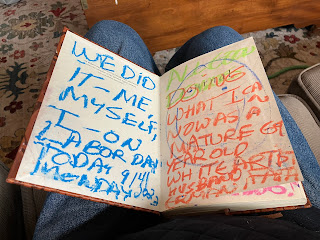 WE DID
IT—ME,
MYSELF,
I—ON
LABOR DAY
TODAY 9/4/
MENDAY
DOING
WHAT I CAN
NOW AS A
MATURE 69
YEAR OLD
WHITE ARTIST
HUSBAND